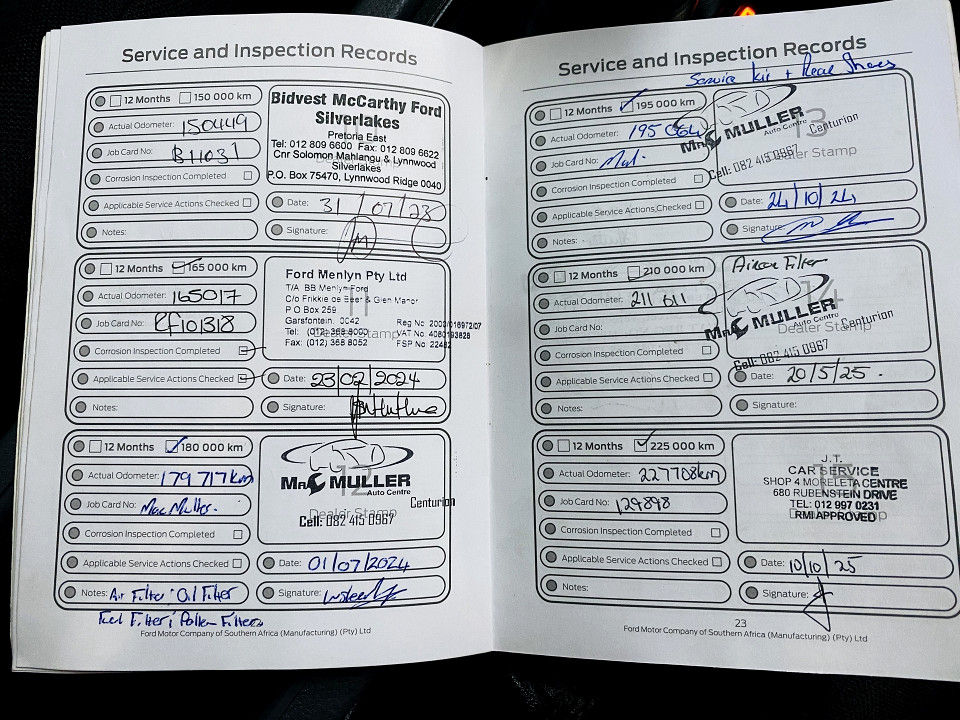 Service and Inspection Records
12 Months 150 000 km
Actual Odometer: 150449
Job Card No: B11031
Corrosion Inspection Completed
Applicable Service Actions Checked
Notes:
Bidvest McCarthy Ford
Silverlakes
Pretoria East
Tel: 012 809 6600 Fax: 012 809 6622
Cnr Solomon Mahlangu & Lynnwood
Silverlakes
P.O. Box 75470, Lynnwood Ridge 0040
Date: 31/07/23
Signature:
12 Months 165 000 km
Actual Odometer: 165017
Job Card No: RF101318
Corrosion Inspection Completed
Applicable Service Actions Checked
Notes:
11
Ford Menlyn Pty Ltd
T/A BB Menlyn Ford
C/o Frikkie de Beer & Glen Manor
P O Box 259
Garsfontein, 0042
Tel: (012) 368 8000
Fax: (012) 368 8052
Reg No 2000/016972/07
VAT No 4080193828
FSP No 22482
Dealer Stamp
Date: 23/02/2024
Signature:
12 Months 180 000 km
Actual Odometer: 179 717 km
Job Card No: Mac Muller.
Corrosion Inspection Completed
Applicable Service Actions Checked
Notes: Air Filter; Oil Filter
Fuel Filter; Pollen Filter
12
MAC MULLER
Auto Centre
Centurion
Dealer Stamp
Cell: 082 415 0967
Date: 01/07/2024
Signature:
Ford Motor Company of Southern Africa (Manufacturing) (Pty) Ltd
Service and Inspection Records
Service kit + Rear Shoes
12 Months 195 000 km
Actual Odometer: 195 064
Job Card No:
Corrosion Inspection Completed
Applicable Service Actions Checked
Notes:
13
MAC MULLER
Auto Centre
Centurion
Dealer Stamp
Cell: 082 415 0967
Date: 24/10/24
Signature:
12 Months 210 000 km
Actual Odometer: 211 611
Job Card No:
Corrosion Inspection Completed
Applicable Service Actions Checked
Notes:
Aircon Filter
14
MAC MULLER
Auto Centre
Centurion
Dealer Stamp
Cell: 082 415 0967
Date: 20/5/25.
Signature:
12 Months 225 000 km
Actual Odometer: 227708km
Job Card No: 129898
Corrosion Inspection Completed
Applicable Service Actions Checked
Notes:
J.T.
CAR SERVICE
SHOP 4 MORELETA CENTRE
680 RUBENSTEIN DRIVE
TEL: 012 997 0231
RMI APPROVED
Dealer Stamp
Date: 10/10/25
Signature:
23
Ford Motor Company of Southern Africa (Manufacturing) (Pty) Ltd